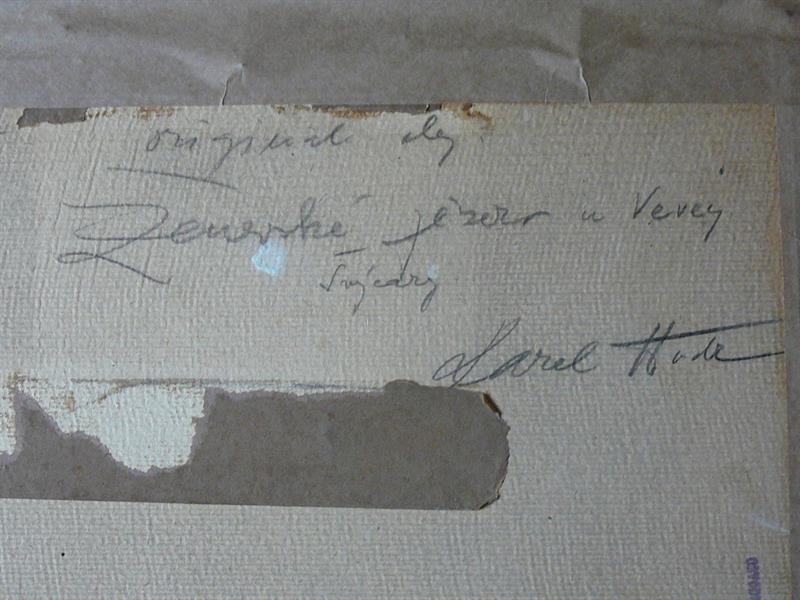 original olej
Ženevské jezero u Vevey
Švýcary
Karel Hodr